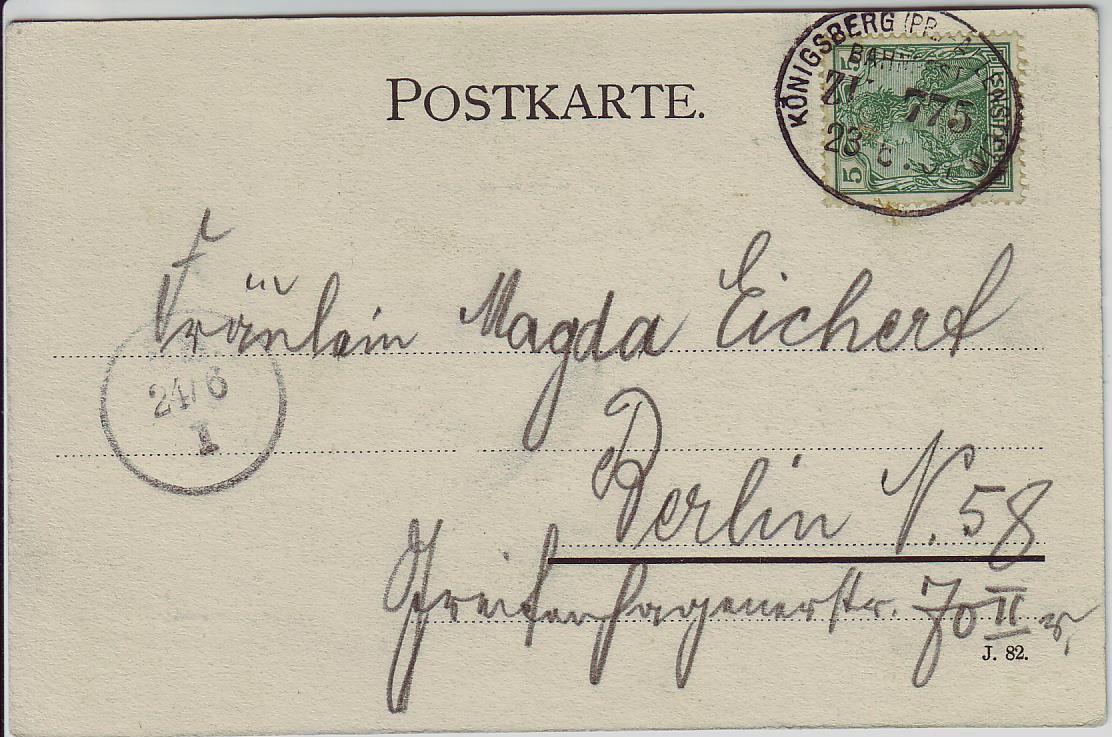 KÖNIGSBERG (PR.)-ALLENSTEIN
BAHNPOST
ZUG 775
23 6
POSTKARTE.
5
5
Fräulein Magda Eichert
24/6
I
Berlin N. 58
Greifenhagenerstr. 70 II r,
J. 82.